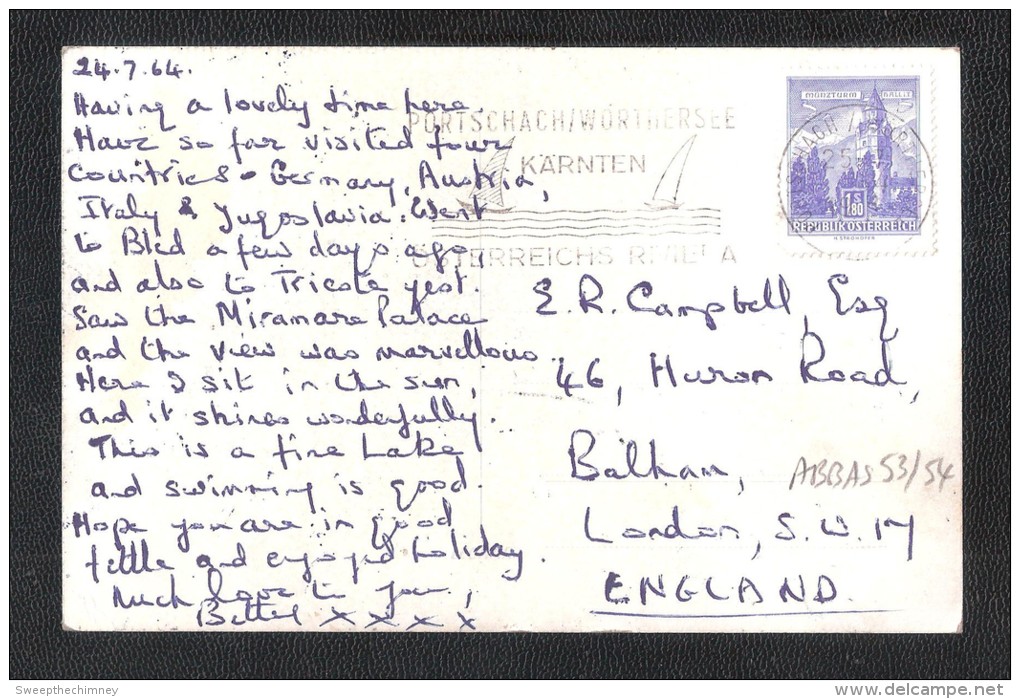 24.7.64.
Having a lovely time here.
Have so far visited four
Countries - Germany, Austria,
Italy & Yugoslavia. Went
to Bled a few days ago,
and also to Trieste yest.
Saw the Miramare Palace
and the view was marvellous.
Here I sit in the sun,
and it shines wonderfully.
This is a fine Lake
and swimming is good.
Hope you are in good
fettle and enjoyed holiday.
Much love to you,
X X X X
PORTSCHACH/WÖRTHERSEE
KÄRNTEN
ÖSTERREICHS RIVIERA
MÜNZTURM HALL I.T.
1 S 80
REPUBLIK ÖSTERREICH
E. R. Campbell, Esq
46, Huron Road,
Balham,
ABBAS 53/54
London, S.W. 17
ENGLAND.
Sweepthechimney
www.delcampe.net